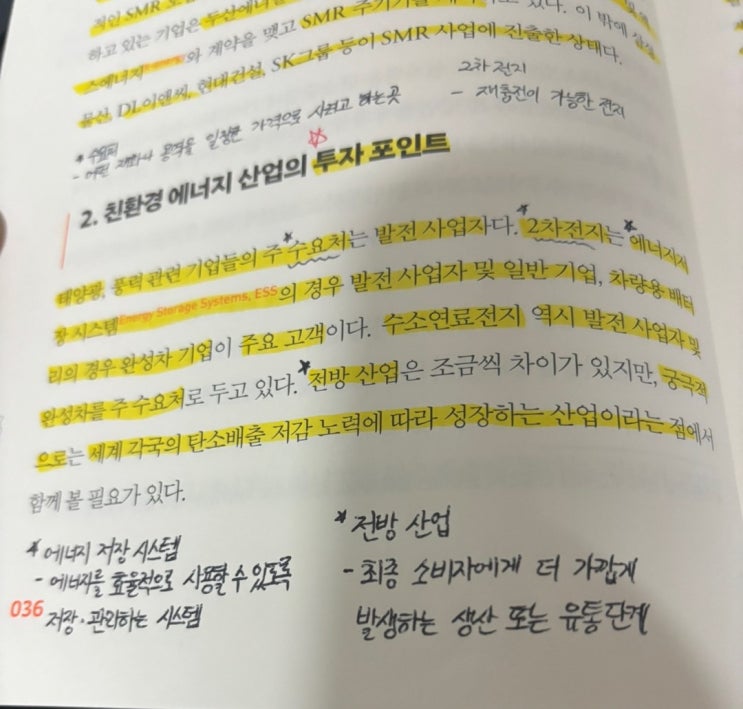 적인 SMR
하고 있는 기업은 두산에너
스에너지와 계약을 맺고 SMR 주기기를 있다. 이 밖에 삼성
물산, DL이앤씨, 현대건설, SK그룹 등이 SMR 사업에 진출한 상태다.
2차 전지
- 재충전이 가능한 전지
* 수요처
- 어떤 재화나 용역을 일정한 가격으로 사려고 하는 곳
2. 친환경 에너지 산업의 투자 포인트
태양광, 풍력 관련 기업들의 주 수요처는 발전 사업자다. 2차전지는 에너지저
장 시스템Energy Storage Systems, ESS의 경우 발전 사업자 및 일반 기업, 차량용 배터
리의 경우 완성차 기업이 주요 고객이다. 수소연료전지 역시 발전 사업자 및
완성차를 주 수요처로 두고 있다. 전방 산업은 조금씩 차이가 있지만, 궁극적
으로는 세계 각국의 탄소배출 저감 노력에 따라 성장하는 산업이라는 점에서
함께 볼 필요가 있다.
* 에너지 저장 시스템
- 에너지를 효율적으로 사용할 수 있도록
저장·관리하는 시스템
* 전방 산업
- 최종 소비자에게 더 가깝게
발생하는 생산 또는 유통단계
036